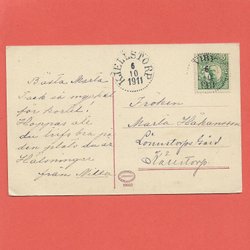 KJELLSTORP
6
10
1911
Bästa Marta
Tack så mycket
för kortet!
Hoppas att
du trifs bra på
den plats du är
Hälsningar
från
Fröken
Marta Håkansson
Lönnstorps Gård
Kärrstorp